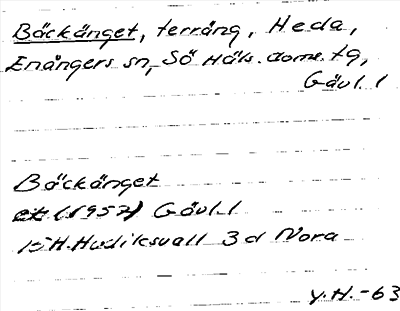 Bäckänget, terräng, Heda,
Enångers sn, Sö Häls. doms. tg,
Gävl. l
Bäckänget
ek (1957) Gävl. l
15H. Hudiksvall 3d Nora
Y.H. -63